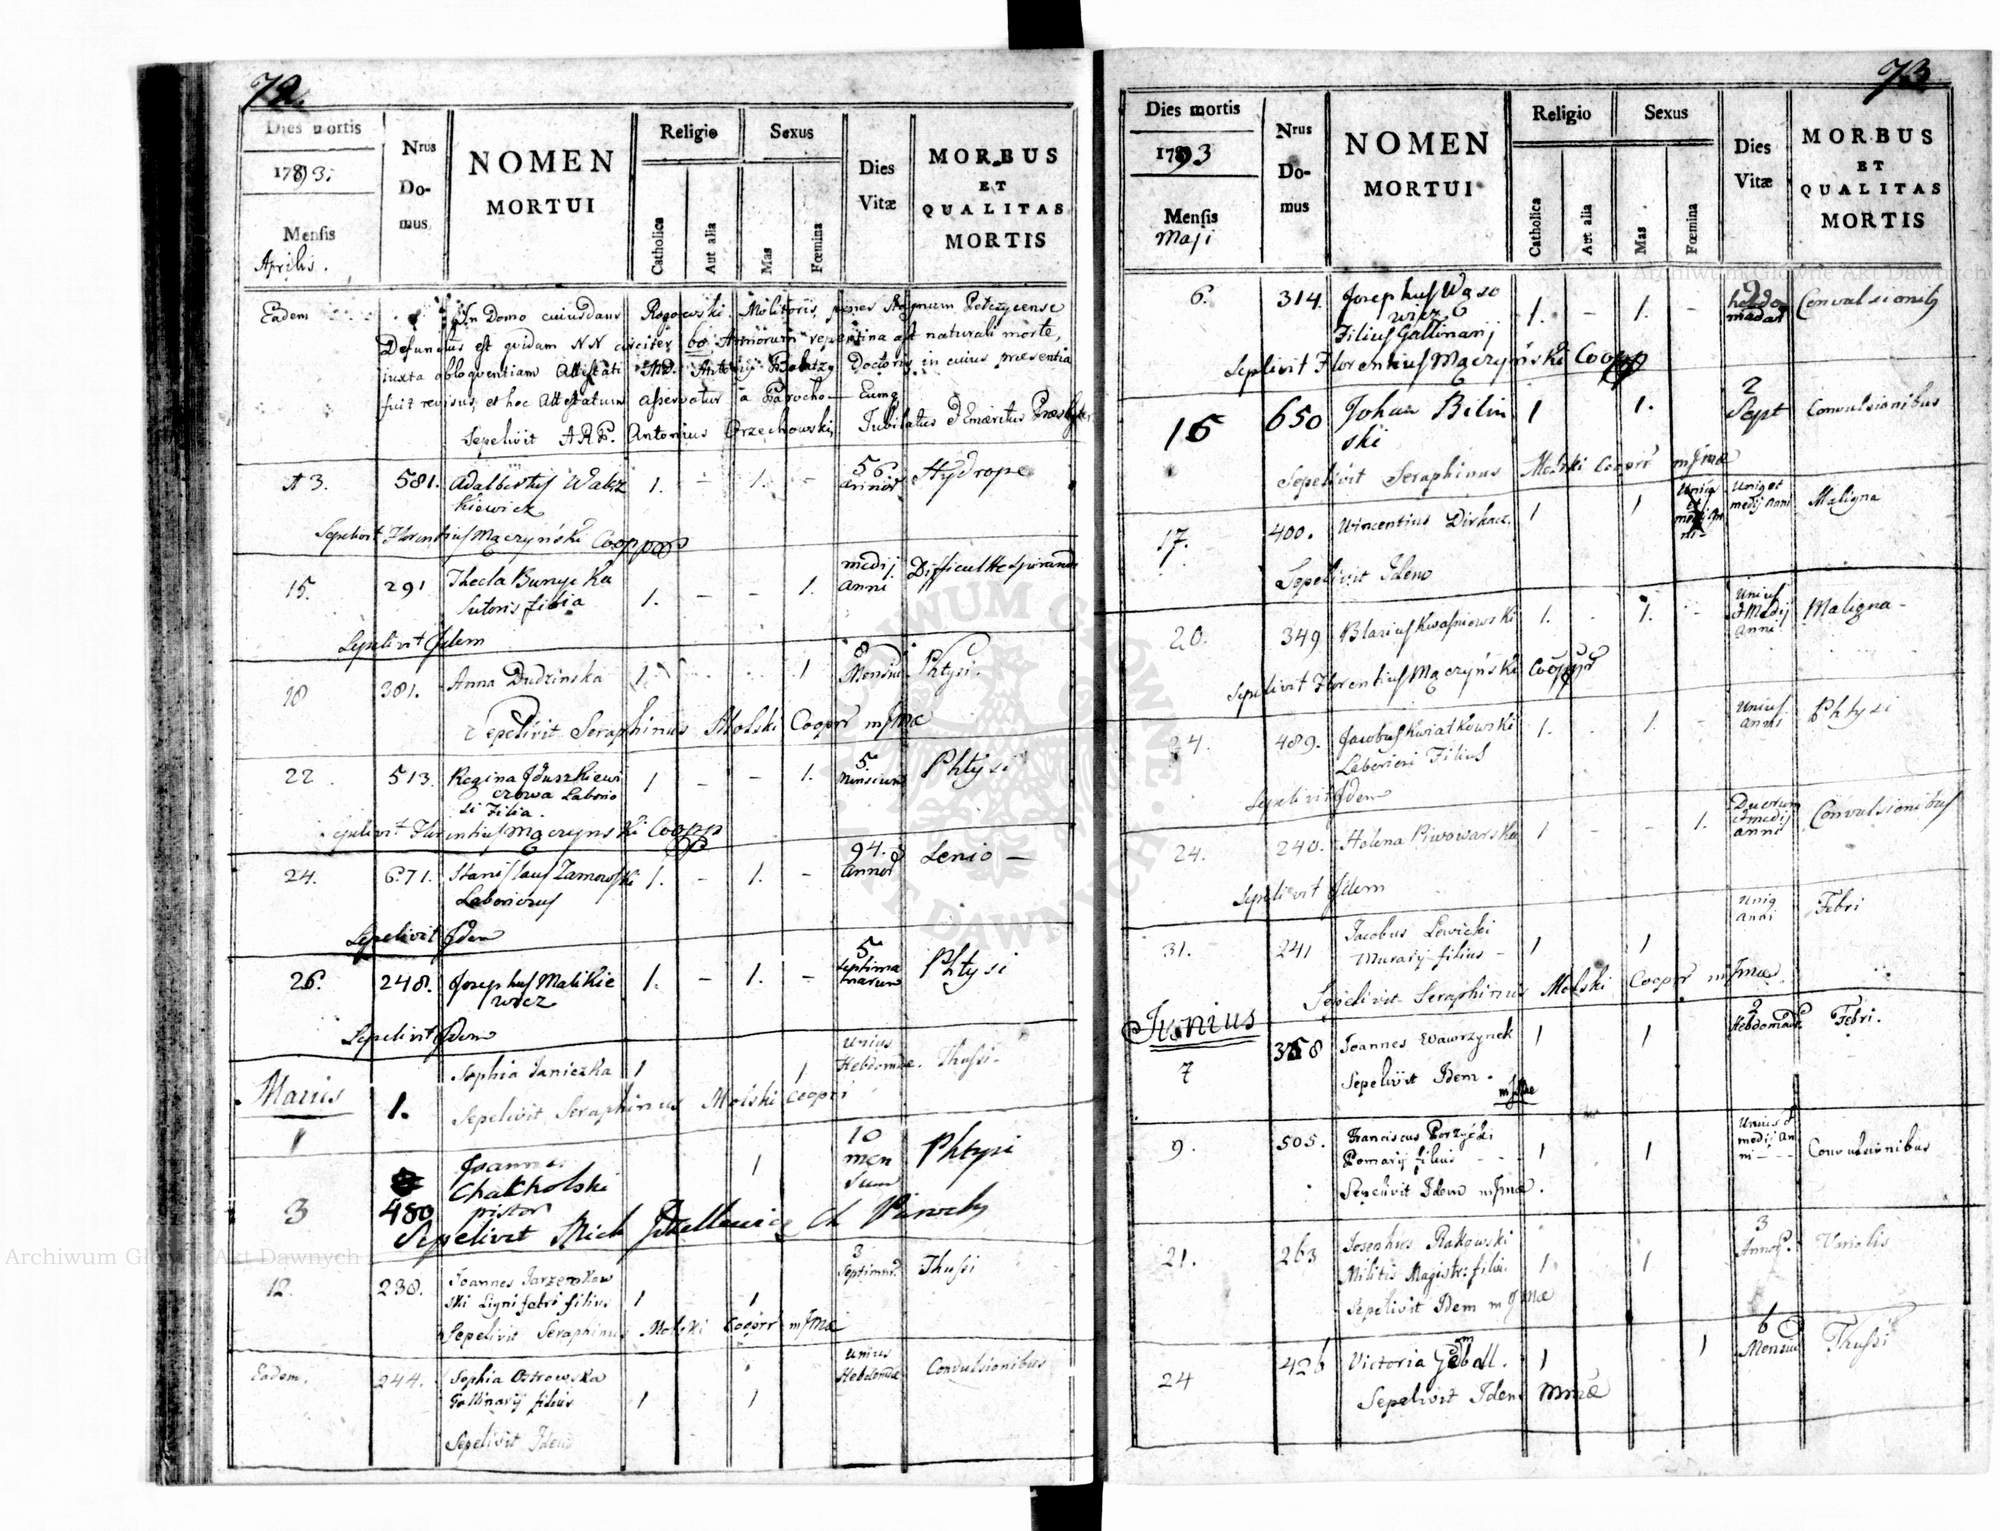 72.
Dies mortis
1793.
Mensis
Aprilis.
Nrus
Do-
mus
NOMEN
MORTUI
Religio
Catholica
Aut alia
Sexus
Mas
Fœmina
Dies
Vitæ
MORBUS
ET
QUALITAS
MORTIS
Eadem
In Domo cuiusdam Rogowski Molitoris, penes Stagnum
Defunctus est quidam NN circiter 60 Annorum repentina ast naturali morte,
iuxta obloquentiam Attestati Doctoris, in cuius præsentia
fuit revisus, et hoc Attestatum asservatur a Parocho — Eumq
Sepelivit A R P. Antonius Orzechowski, Jubilatus Emeritus
13. 581. Adalbertus Walcz
kiewicz 1. - 1. - 56 annor Hydrope
Sepelivit Florentius Mączyński Coopr
15. 291 Thecla
Sutoris filia 1. - - 1. medij
Anni
Sepelivit Idem
18 381. Anna Dudzinska 1. 1 8 Mensiu Phtysi.
Sepelivit Seraphinus Molski Coopr mpmæ
22 513. Regina Iduszkiewi
czowa Laborio
si Filia. 1 - - 1. 5.
Mensium Phtysi
Sepelivit Florentius Mączynski Coopr
24. 671. Stanislaus Zamowski
Laboriosus 1. - 1. - 94.
Annor Senio —
Sepelivit Idem
26. 248. Josephus Malikie
wicz 1. - 1. - 5
septima
narum Phtysi
Sepelivit Idem
Majus
1 1. Sophia Janiczka 1 1 unius
Hebdomdæ. Thussi-
Sepelivit Seraphinus Molski Coopr
3 480 Joannes
Chalcholski
pistor 1 10
men
sum Phtysi
Sepelivit Mich
12. 238. Joannes Jarzemkow
ski Ligni fabri filius 1 1 3
Septiman. Thussi
Sepelivit Seraphinus Molski Coopr mpmæ
Eadem. 244. Sophia Ostrowska
Gallinarij filius 1 1 unius
Hebdomdæ Convulsionibus
Sepelivit Idem
73
Dies mortis
1793
Mensis
Maji
Nrus
Do-
mus
NOMEN
MORTUI
Religio
Catholica
Aut alia
Sexus
Mas
Fœmina
Dies
Vitæ
MORBUS
ET
QUALITAS
MORTIS
6. 314. Josephus Wąso
wicz
Filius Gallinarij 1. - 1. - 2
hebdo
madar Convulsionib
Sepelivit Florentius Mączyński Coopr
15 650 Johan Bilin
ski 1 1. 2
Sept Convulsionibus
Sepelivit Seraphinus Molski Coopr mpmæ
17. 400. Vincentius Dirkacz. 1 1 Unig et
medij Anni Maligna
Sepelivit Idem
20. 349 Blasius Kwasniowski 1. - 1. - Unius
et Medij
Anni Maligna -
Sepelivit Florentius Mączyński Coopr
24. 489. Jacobus Kwiatkowski
Laboriosi Filius 1. 1. - Unius
Anni Phtysi
Sepelivit Idem
24. 240. Helena Piwowarska 1 - - 1. Duorum
et medij
anni Convulsionibus
Sepelivit Idem
31. 241 Jacobus Lewicki
Murarij filius - 1 1 Unig
Anni Febri
Sepelivit Seraphinus Molski Coopr mpmæ
Junius
7 358 Joannes Wawrzynek 1 1 2
Hebdomad. Febri.
Sepelivit Idem. mpmæ
9. 505. Franciscus
Pomarij filius - - - 1 1 Unius &
medij An
ni - - - Convulsionibus
Sepelivit Idem mpmæ.
21. 263 Josephus Rakowski
Militis Magistr: filiu. 1 1 3
Annor. Variolis
Sepelivit Idem mpmæ
24 426 Victoria 1 1 6
Mensiu Thussi
Sepelivit Idem mpmæ
Archiwum Główne Akt Dawnych
Archiwum Główne Akt Dawnych
ARCHIWUM GŁÓWNE AKT DAWNYCH